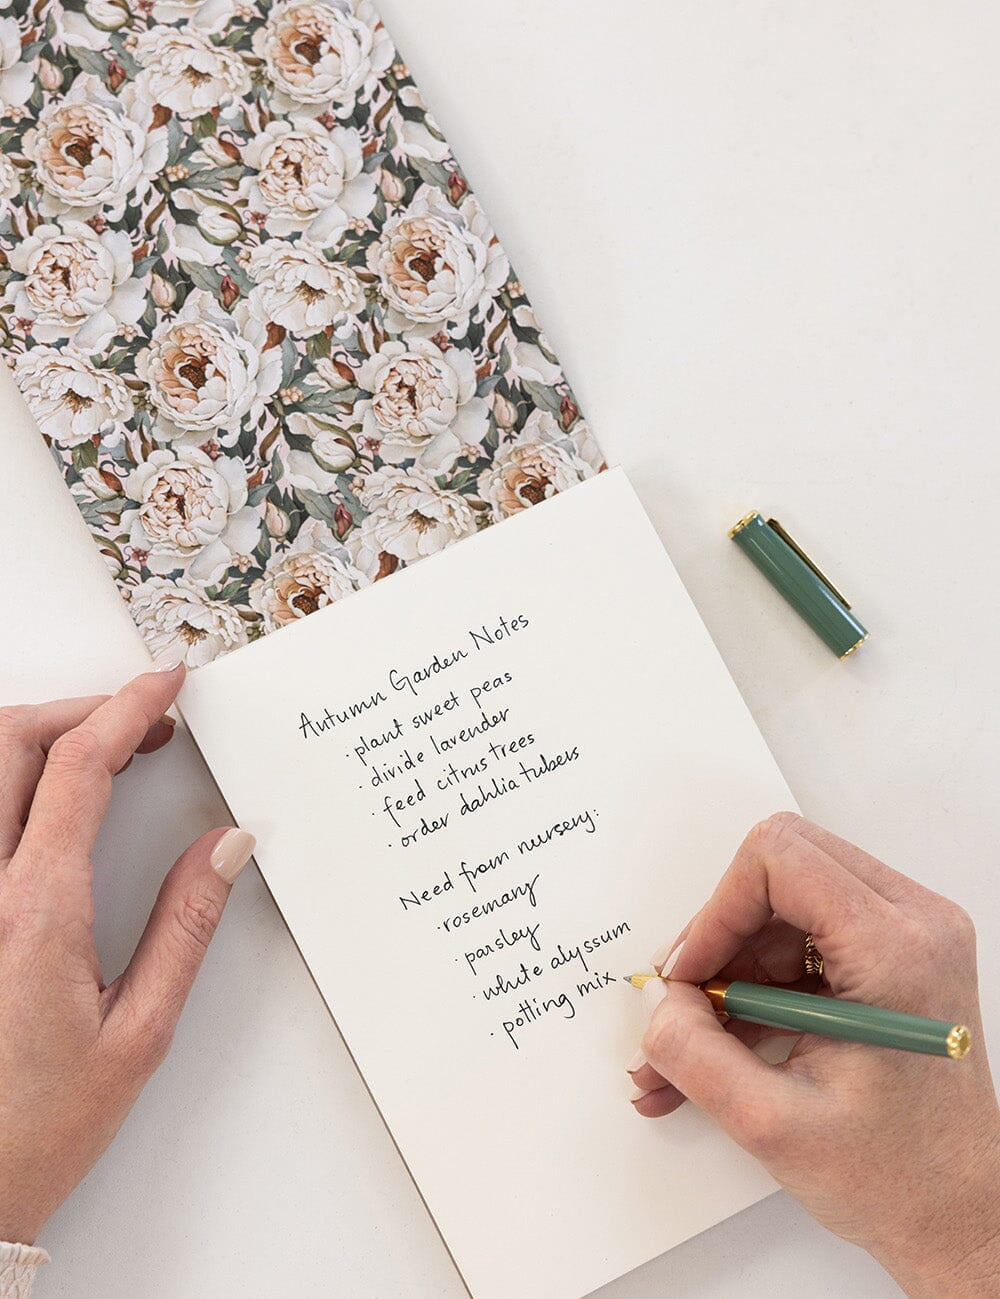 Autumn Garden Notes
· plant sweet peas
· divide lavender
· feed citrus trees
· order dahlia tubers
Need from nursery:
· rosemary
· parsley
· white alyssum
· potting mix